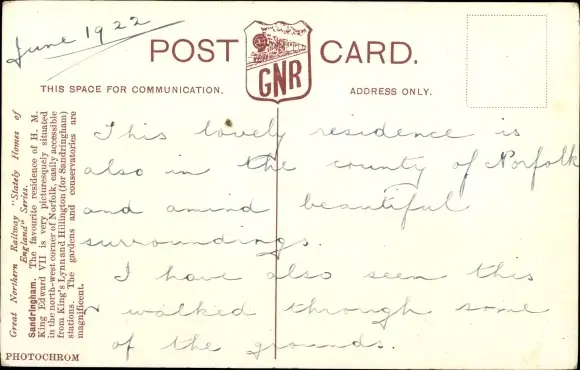 June 1922
POST CARD.
GNR
THIS SPACE FOR COMMUNICATION.
ADDRESS ONLY.
Great Northern Railway "Stately Homes of
England" Series.
Sandringham. The favourite residence of H. M.
King Edward VII is very picturesquely situated
in the north-west corner of Norfolk, easily accessible
from King's Lynn and Hillington (for Sandringham)
stations. The gardens and conservatories are
magnificent.
PHOTOCHROM
This lovely residence is
also in the county of Norfolk
and amind beautiful
surroundings.
I have also seen this
& walked through some
of the grounds.